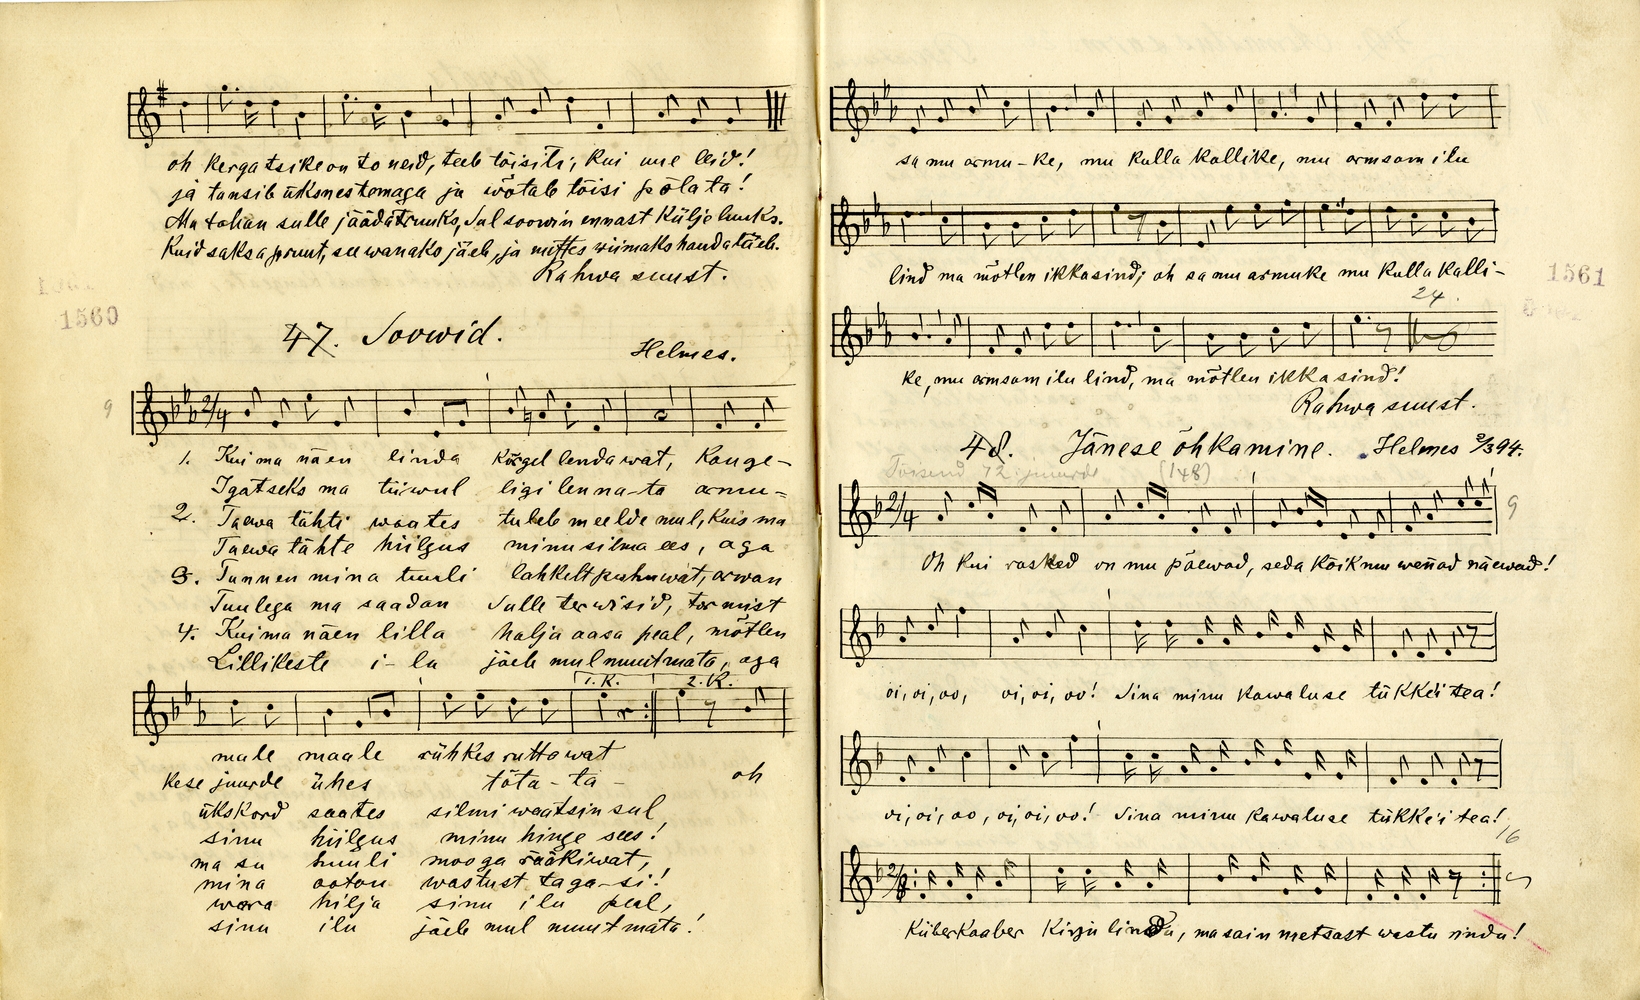 oh kergatsikeon to neid, teeb tõisiti, kui une leid!
ja tansib üksnestemaga ja wõtab tõisi põlata!
Ma tahan sulle jääda truuks, Sul soowin ennast külje luuks.
Kuid saksa pruut, see wanaks jääb, ja wiimaks handa
Rahwa suust.
1560
47. Soowid.
Helmes.
9
1. Kui ma näen linda kõrgel lendawat, kauge-
Igatseks ma tiiwul ligi lenna-ta armu=
2. Taewa tähti waates tuleb meelde mul, kuis ma
Taewa tähte hiilgus minu silma ees, aga
3. Tunnen mina tuuli lahkelt puhuwat, arwan
Tuulega ma saadan Sulle terwisid, tormist
4. Kui ma näen lilla halja aasa peal, mõtlen
Lillikeste i-lu jääb mul muutmata, aga
1. K. 2. K.
male maale rühkes ruttawat
kese juurde ühes tõta-ta- oh
ükskord saates silmi waatsin sul
sinu hiilgus minu hinge sees!
ma su huuli mooga rääkiwat,
mina ootan wastust taga-si!
wara hilja sinu ilu peal,
sinu ilu jääb mul muutmata!
sa mu armu-ke, mu kulla kallike, mu armsam ilu
lind ma mõtlen ikka sind; oh sa mu armuke mu kulla kalli-
1561
24.
ke, mu armsam ilu lind, ma mõtlen ikka sind!
Rahwa suust.
48. Jänese õhkamine. Helmes 2/3 94.
72 juurde (148)
9
Oh kui rasked on mu päewad, seda kõik mu wennad näewad!
oi, oi, oo, oi, oi, oo! Sina minu kawaluse tükke'i tea!
oi, oi, oo, oi, oi, oo! Sina minu kawaluse tükke'i tea!
16
Küberkaaber Kirju linda, ma sain metsast wastu rindu!